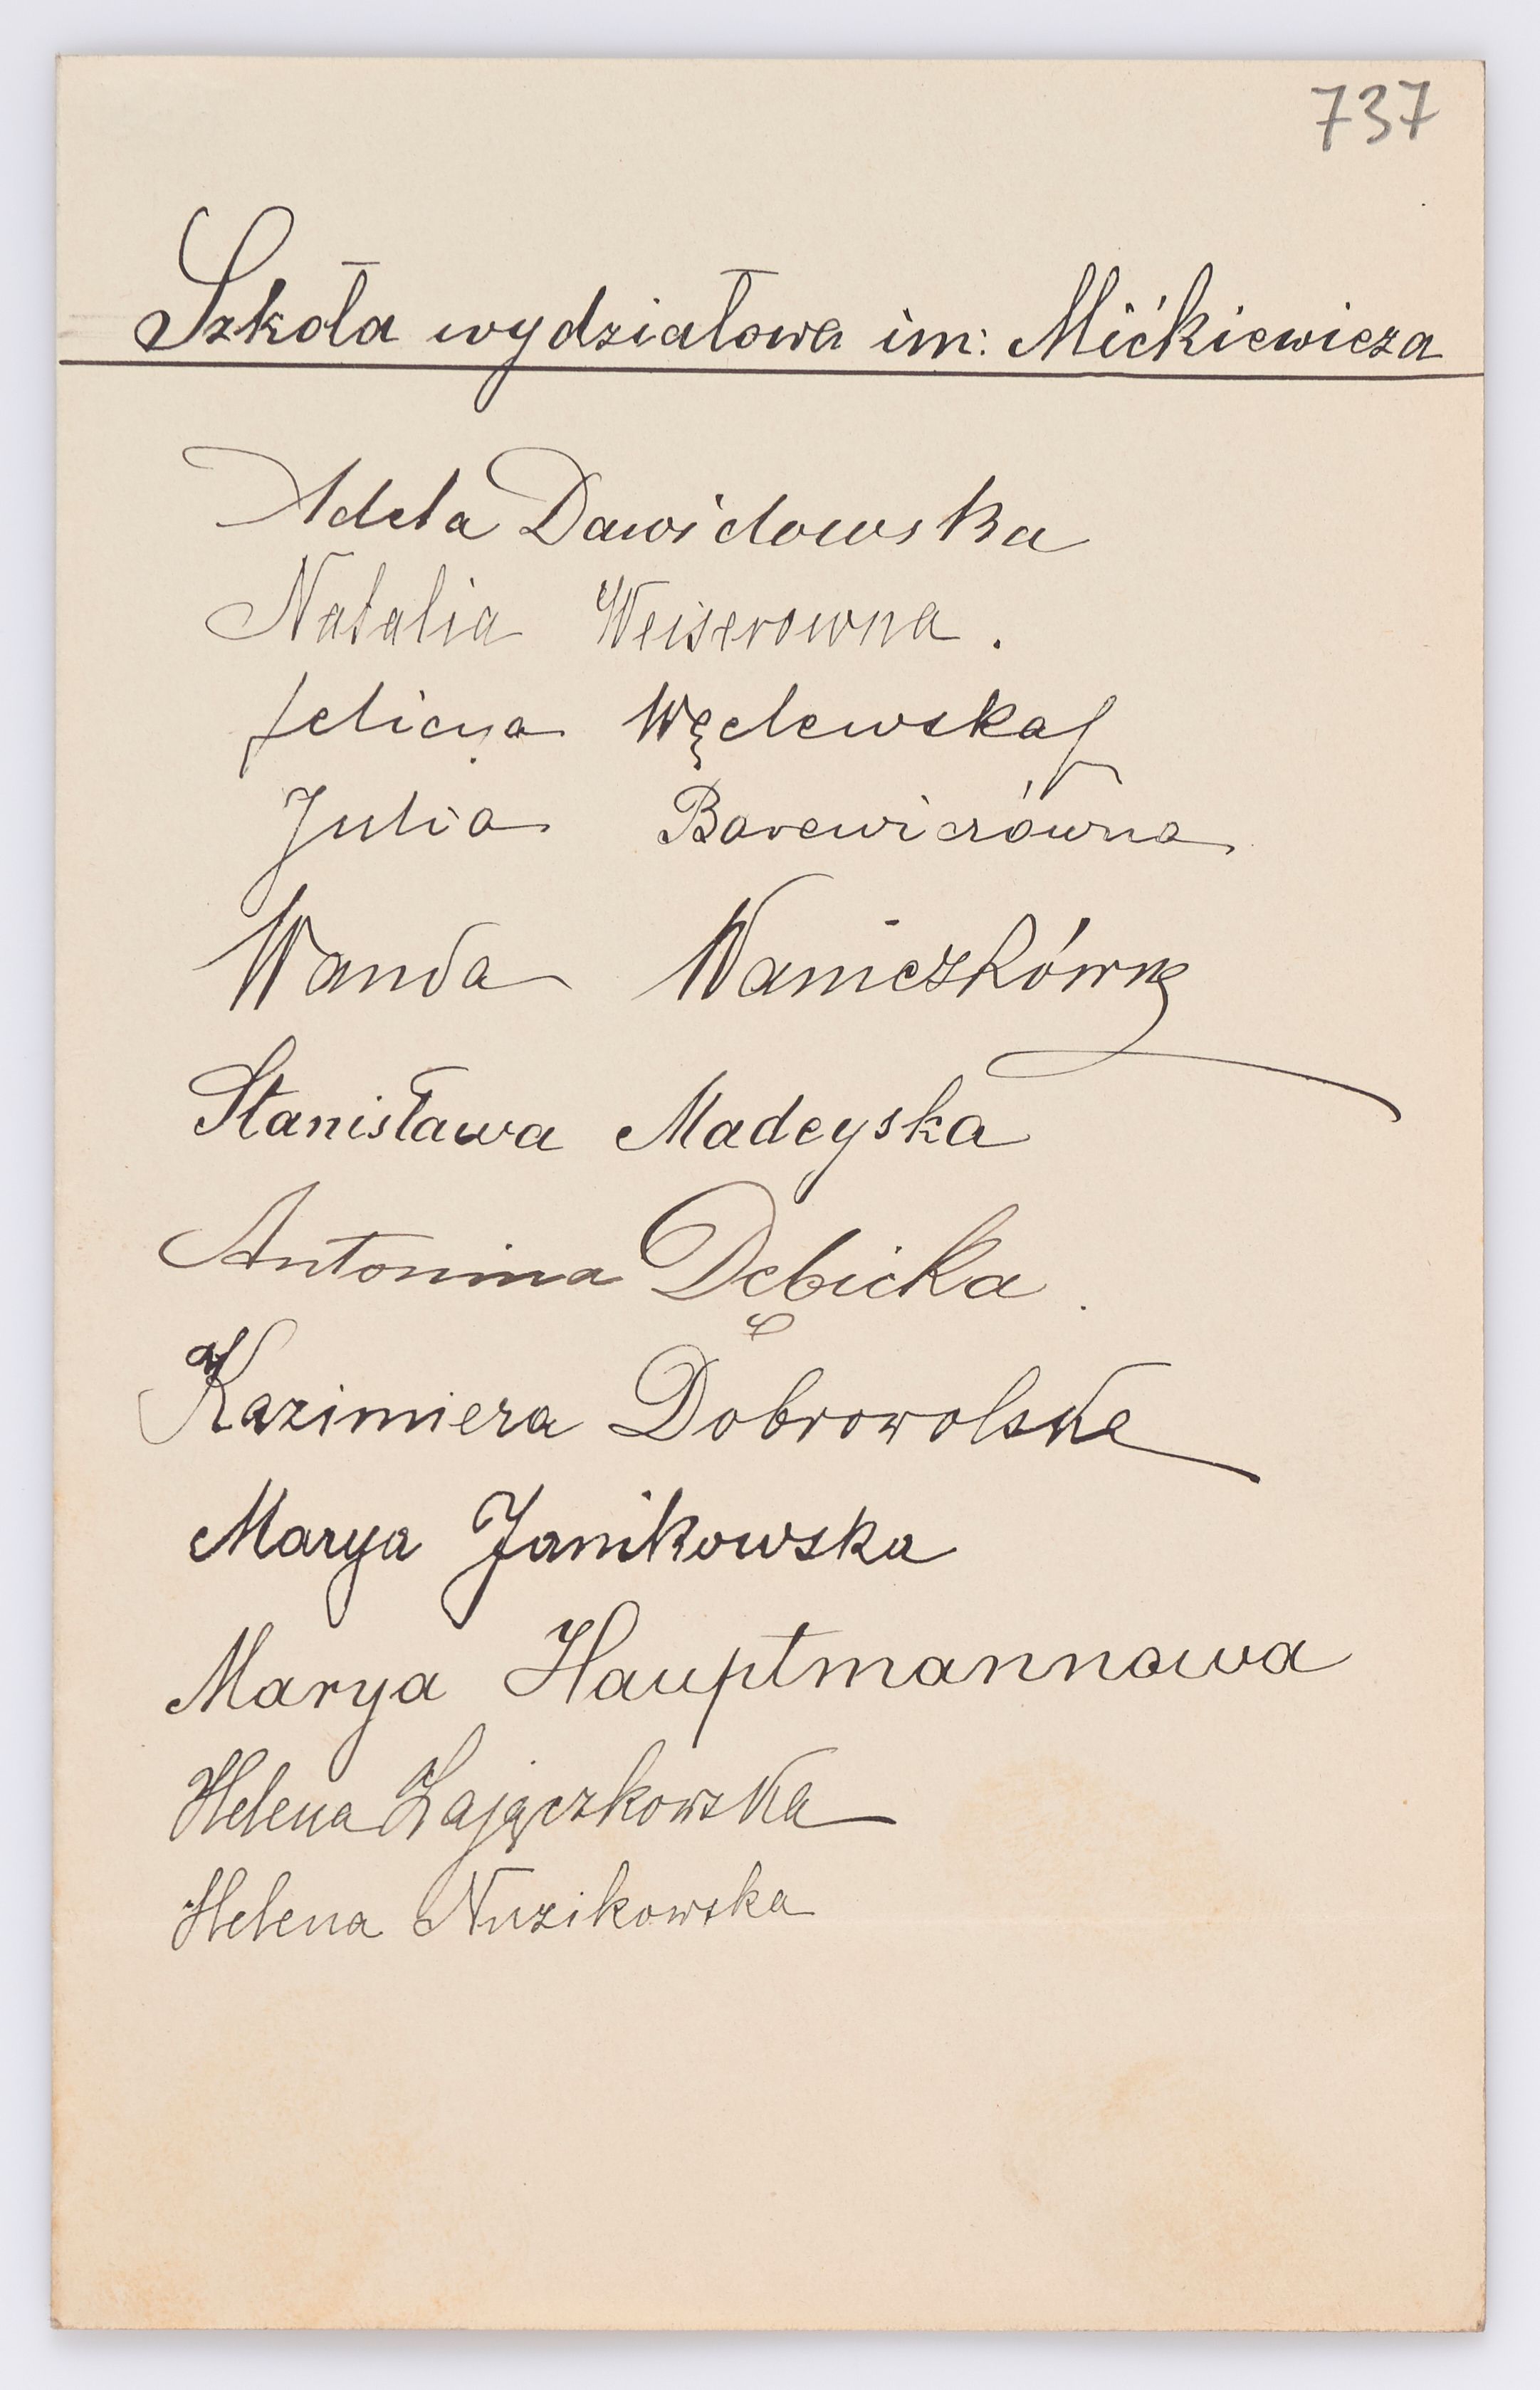 737
Szkoła wydziałowa im: Mićkiewicza
Adela Dawidowska
Natalia Weiserowna.
Felicya Węclewska
Julia Barewiczówna
Wanda Waniczkówna
Stanisława Madeyska
Antonina Dębicka.
Kazimiera Dobrowolska
Marya Janikowska
Marya Hauptmannowa
Helena Zajączkowska
Helena Nuzikowska